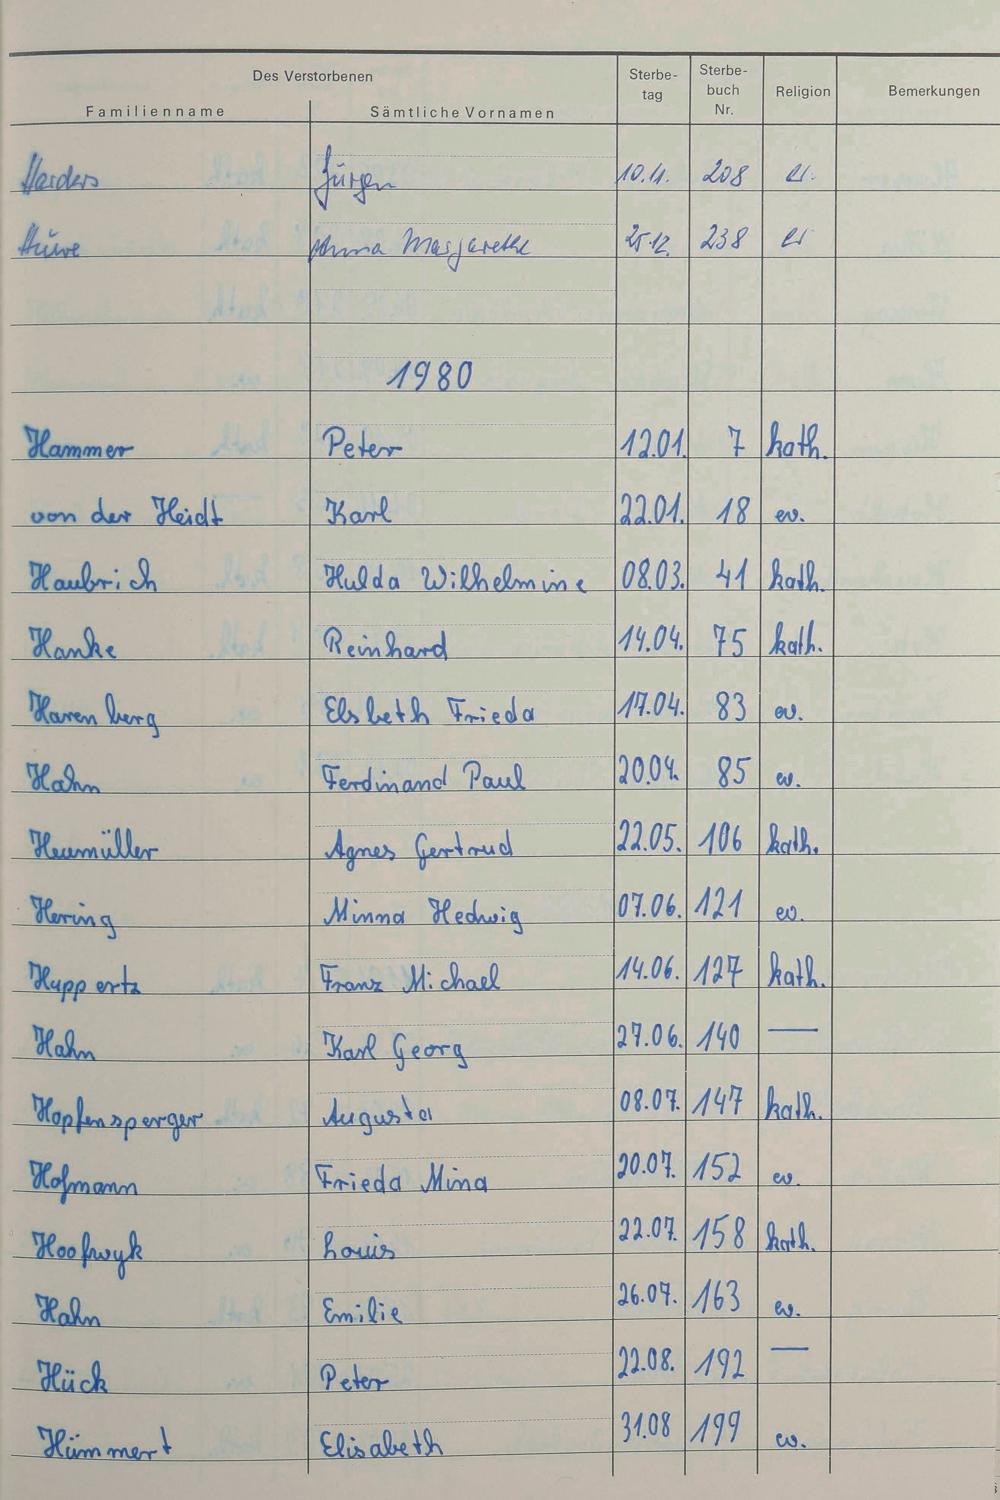 Des Verstorbenen Sterbe- Sterbe-
Familienname Sämtliche Vornamen tag buch Religion Bemerkungen
Nr.
Harders Jürgen 10.11. 208 ev.
Hüwe Anna Margarethe 25.12. 238 ev
1980
Hammer Peter 12.01. 7 kath.
von der Heidt Karl 22.01. 18 ev.
Haubrich Hulda Wilhelmine 08.03. 41 kath.
Hanke Reinhard 14.04. 75 kath.
Harenberg Elsbeth Frieda 17.04. 83 ev.
Hahn Ferdinand Paul 20.04. 85 ev.
Heumüller Agnes Gertrud 22.05. 106 kath.
Hering Minna Hedwig 07.06. 121 ev.
Huppertz Franz Michael 14.06. 127 kath.
Hahn Karl Georg 27.06. 140 —
Hopfensperger Augusta 08.07. 147 kath.
Hofmann Frieda Mina 20.07. 152 ev.
Hoofwyk Louis 22.07. 158 kath.
Hahn Emilie 26.07. 163 ev.
Hück Peter 22.08. 192 —
Hümmert Elisabeth 31.08 199 ev.